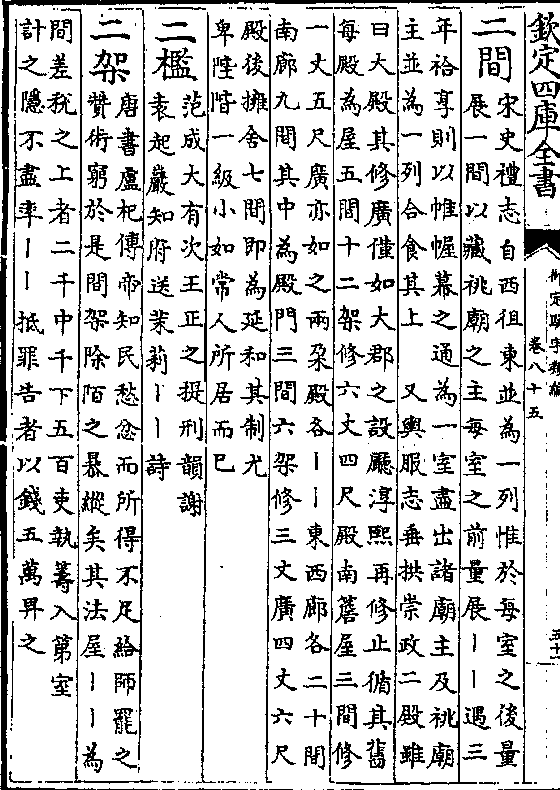 欽定四庫全書
御定駢字類編
卷八十五
五十
二間
宋史禮志自西徂東並為一列惟於每室之後量
展一間以藏祧廟之主每室之前量展丨丨遇三
年祫享則以帷幄幕之通為一室盡出諸廟主及祧廟
主並為一列合食其上 又輿服志垂拱崇政二殿雖
曰大殿其修廣僅如大郡之設廳淳熙再修止循其舊
每殿為屋五間十二架修六丈四尺殿南簷屋三間修
一丈五尺廣亦如之兩朶殿各丨丨東西廊各二十間
南廊九間其中為殿門三間六架修三丈廣四丈六尺
殿後擁舍七間即為延和其制尤
卑陛階一級小如常人所居而已
二檻
范成大有次王正之提刑韻謝
袁起巖知府送茉莉丨丨詩
二架
唐書盧杞傳帝知民愁忿而所得不足給師罷之
贊術窮於是間架除陌之暴縱矣其法屋丨丨為
間差稅之上者二千中千下五百吏執籌入第室
計之隱不盡率丨丨抵罪告者以錢五萬畀之